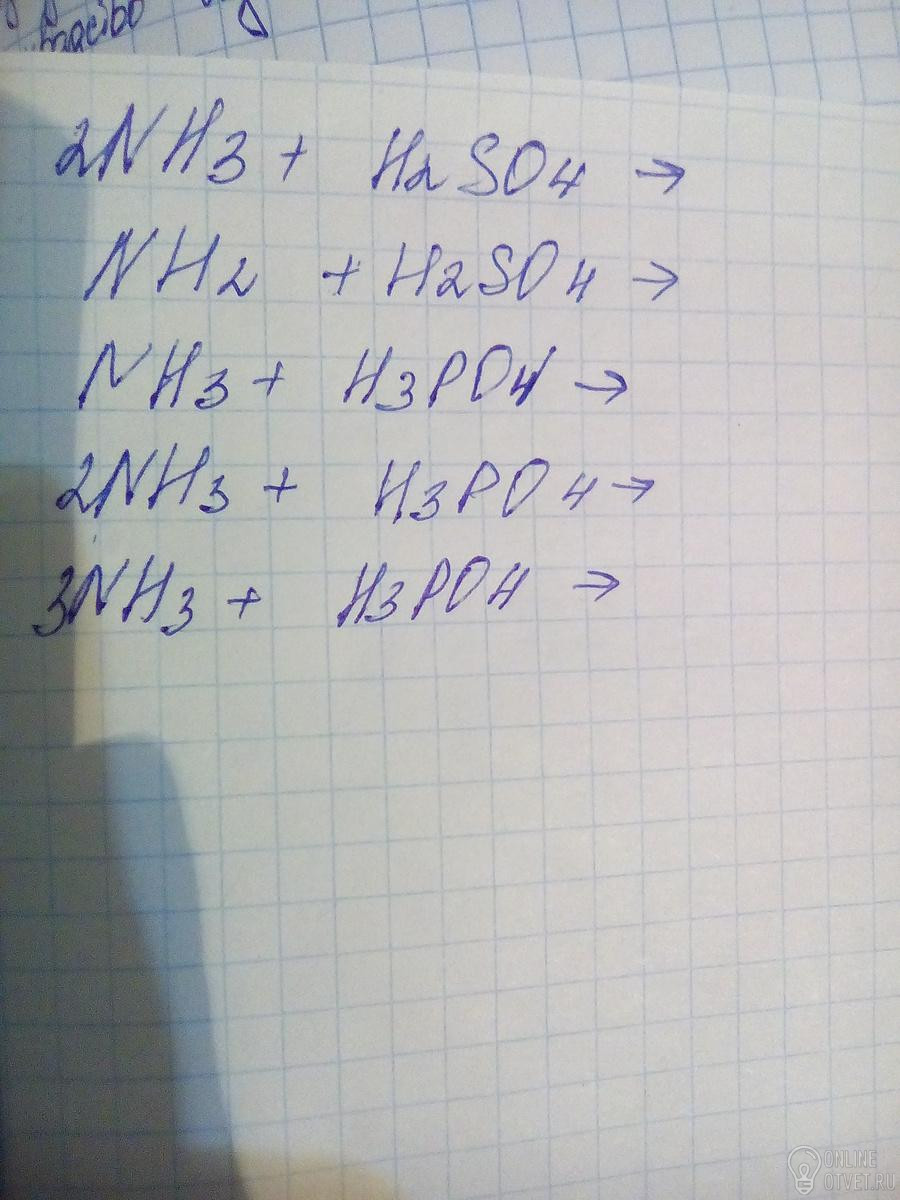 2NH3 + H2SO4 →
NH2 + H2SO4 →
NH3 + H3PO4 →
2NH3 + H3PO4 →
3NH3 + H3PO4 →
ONLINE
OTVET.RU